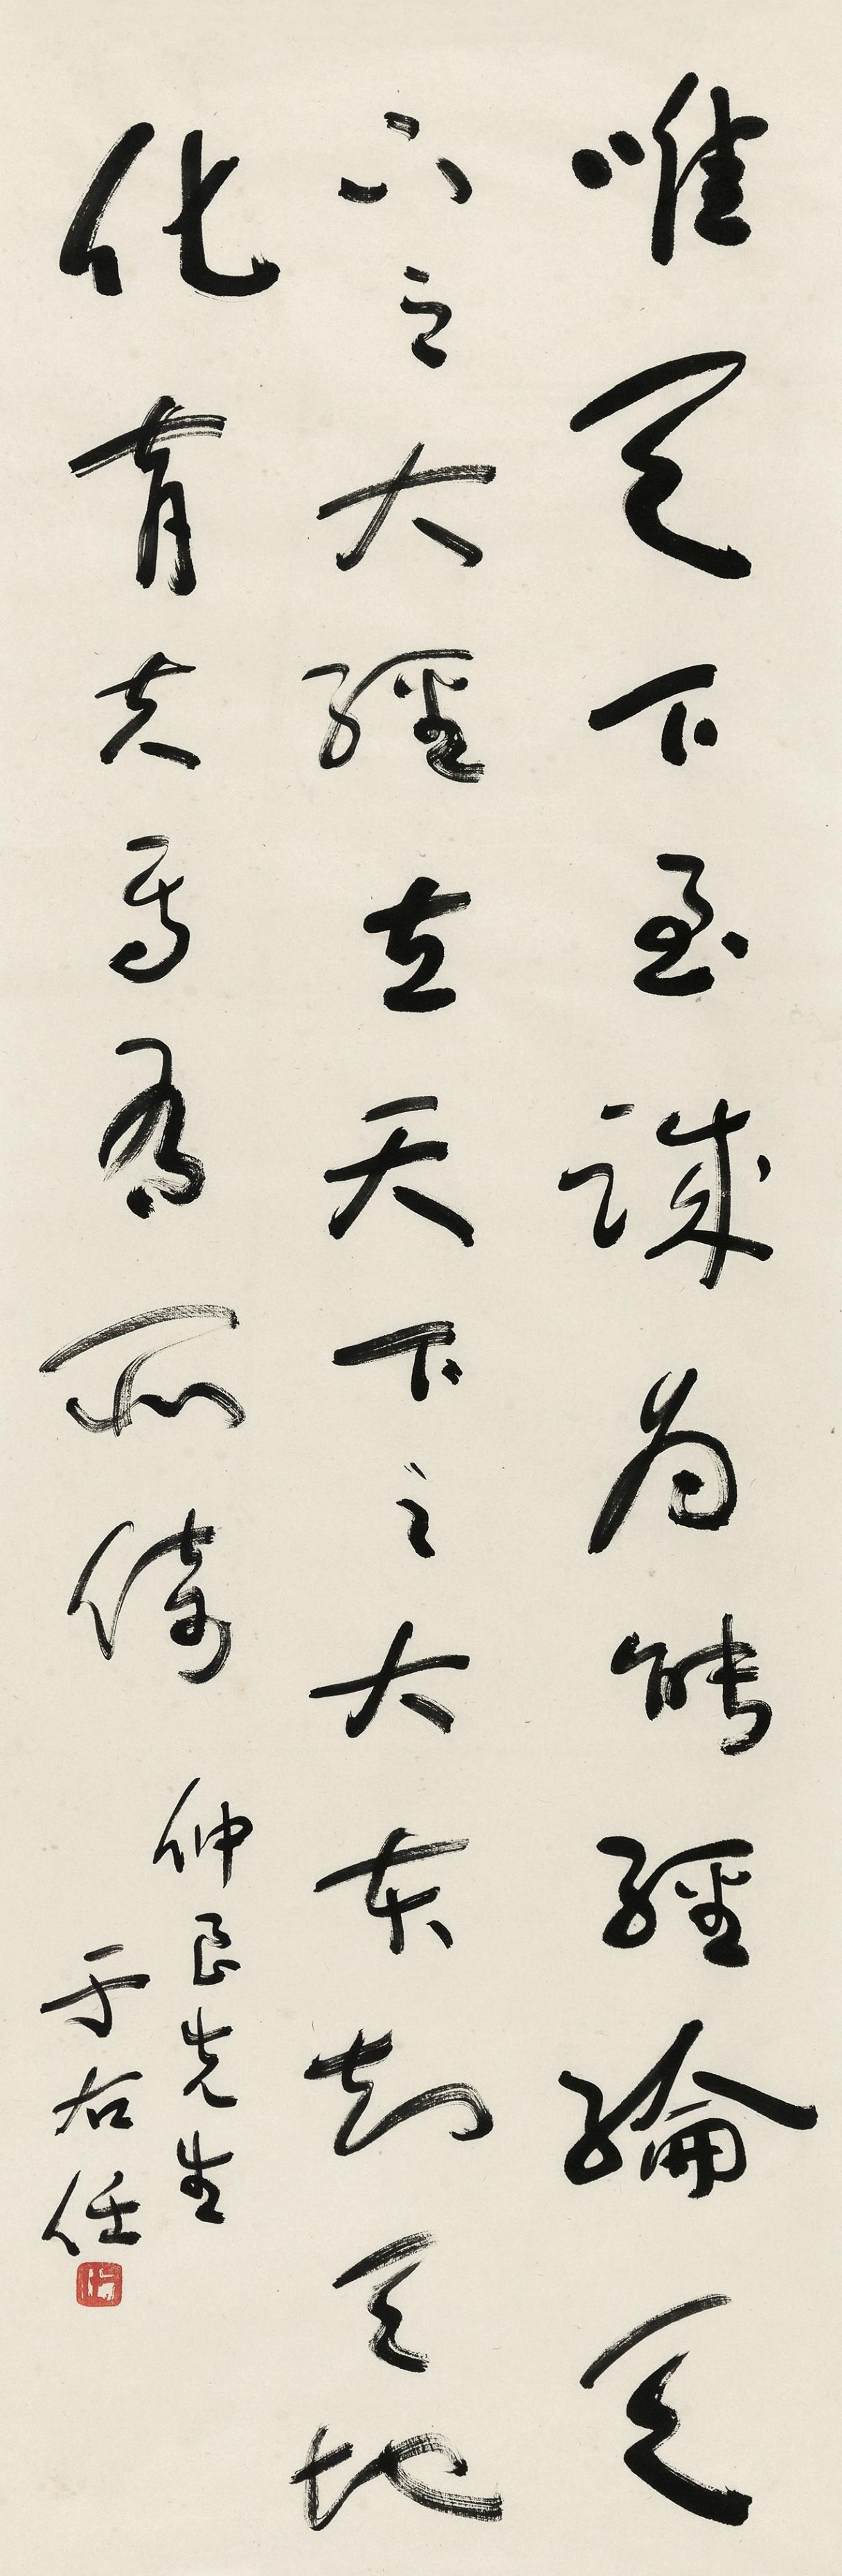 唯天下至誠為能經綸天
下之大經立天下之大本知天地
化育夫焉有所倚
仲良先生
于右任